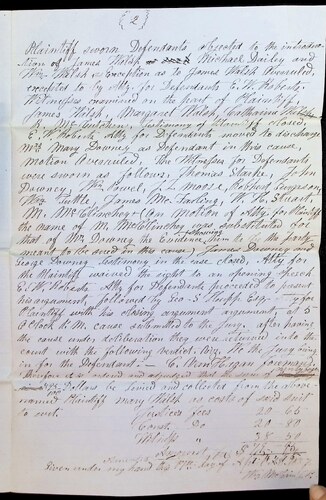 (2)
Plaintiff sworn Defendants objected to the introduc-
tion of James Welsh Michael Dailey and
Mrs. Welsh Exception as to James Welsh Overruled,
excepted to by Atty. for Defendants E. W. Roberts.
Witnesses examined on the part of Plaintiff
James Welsh, Margaret Walsh, Catharine Welsh
Testimony of Plaintiff closed,
E. W. Roberts Atty for Defendants moved to discharge
Mrs Mary Downey as Defendant in this cause,
Motion Overruled, The Witnesses for Defendants
were sworn as follows, Thomas Slacke, John
Downey, Wm Powel, J. Moose, Robert
Mrs Tuttle, James McFarling, W. H. Stuart,
M. McElinchey & On Motion of Atty for Plaintiff
the name of M. McElinchey was substituted for
that of Wm Downey the Evidence following him to be the party
meant to be sued in this cause, Downey and
George Downey testimony in the case closed, Atty for
the Plaintiff waived the right to an opening speech
E. W. Roberts Atty for Defendants proceded to present
his argument, followed by Geo. S. Hupp Esq. for
Plaintiff with his closing argument, at 5
O'Clock P.M. cause submitted to the Jury. after having
the cause under deliberation they were returned into
the court with the following verdict. Viz. We the Jury
in for the Defendant — C. Foreman
Therefore it is ordered and adjudged that the sum of
Dollars be Fined and collected from the above
named Plaintiff Mary Welsh as costs of said suit
to wit.
Justices fees 20 65
Const. Do 20 80
Witness "
Amount $
Given under my hand this day of